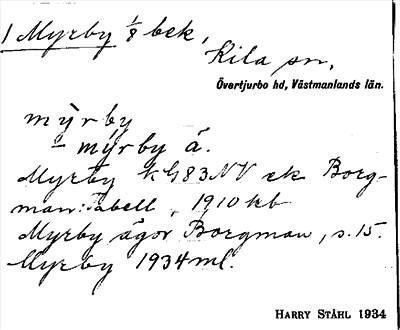 1 Myrby 1/8 bek,
Kila sn,
Övertjurbo hd, Västmanlands län.
mỳrby
– mýrby å.
Myrby kG83NV ek Borg-
man: Tabell, 1910 kb
Myrby ägor Borgman, s. 15.
Myrby 1934 ml.
HARRY STÅHL 1934